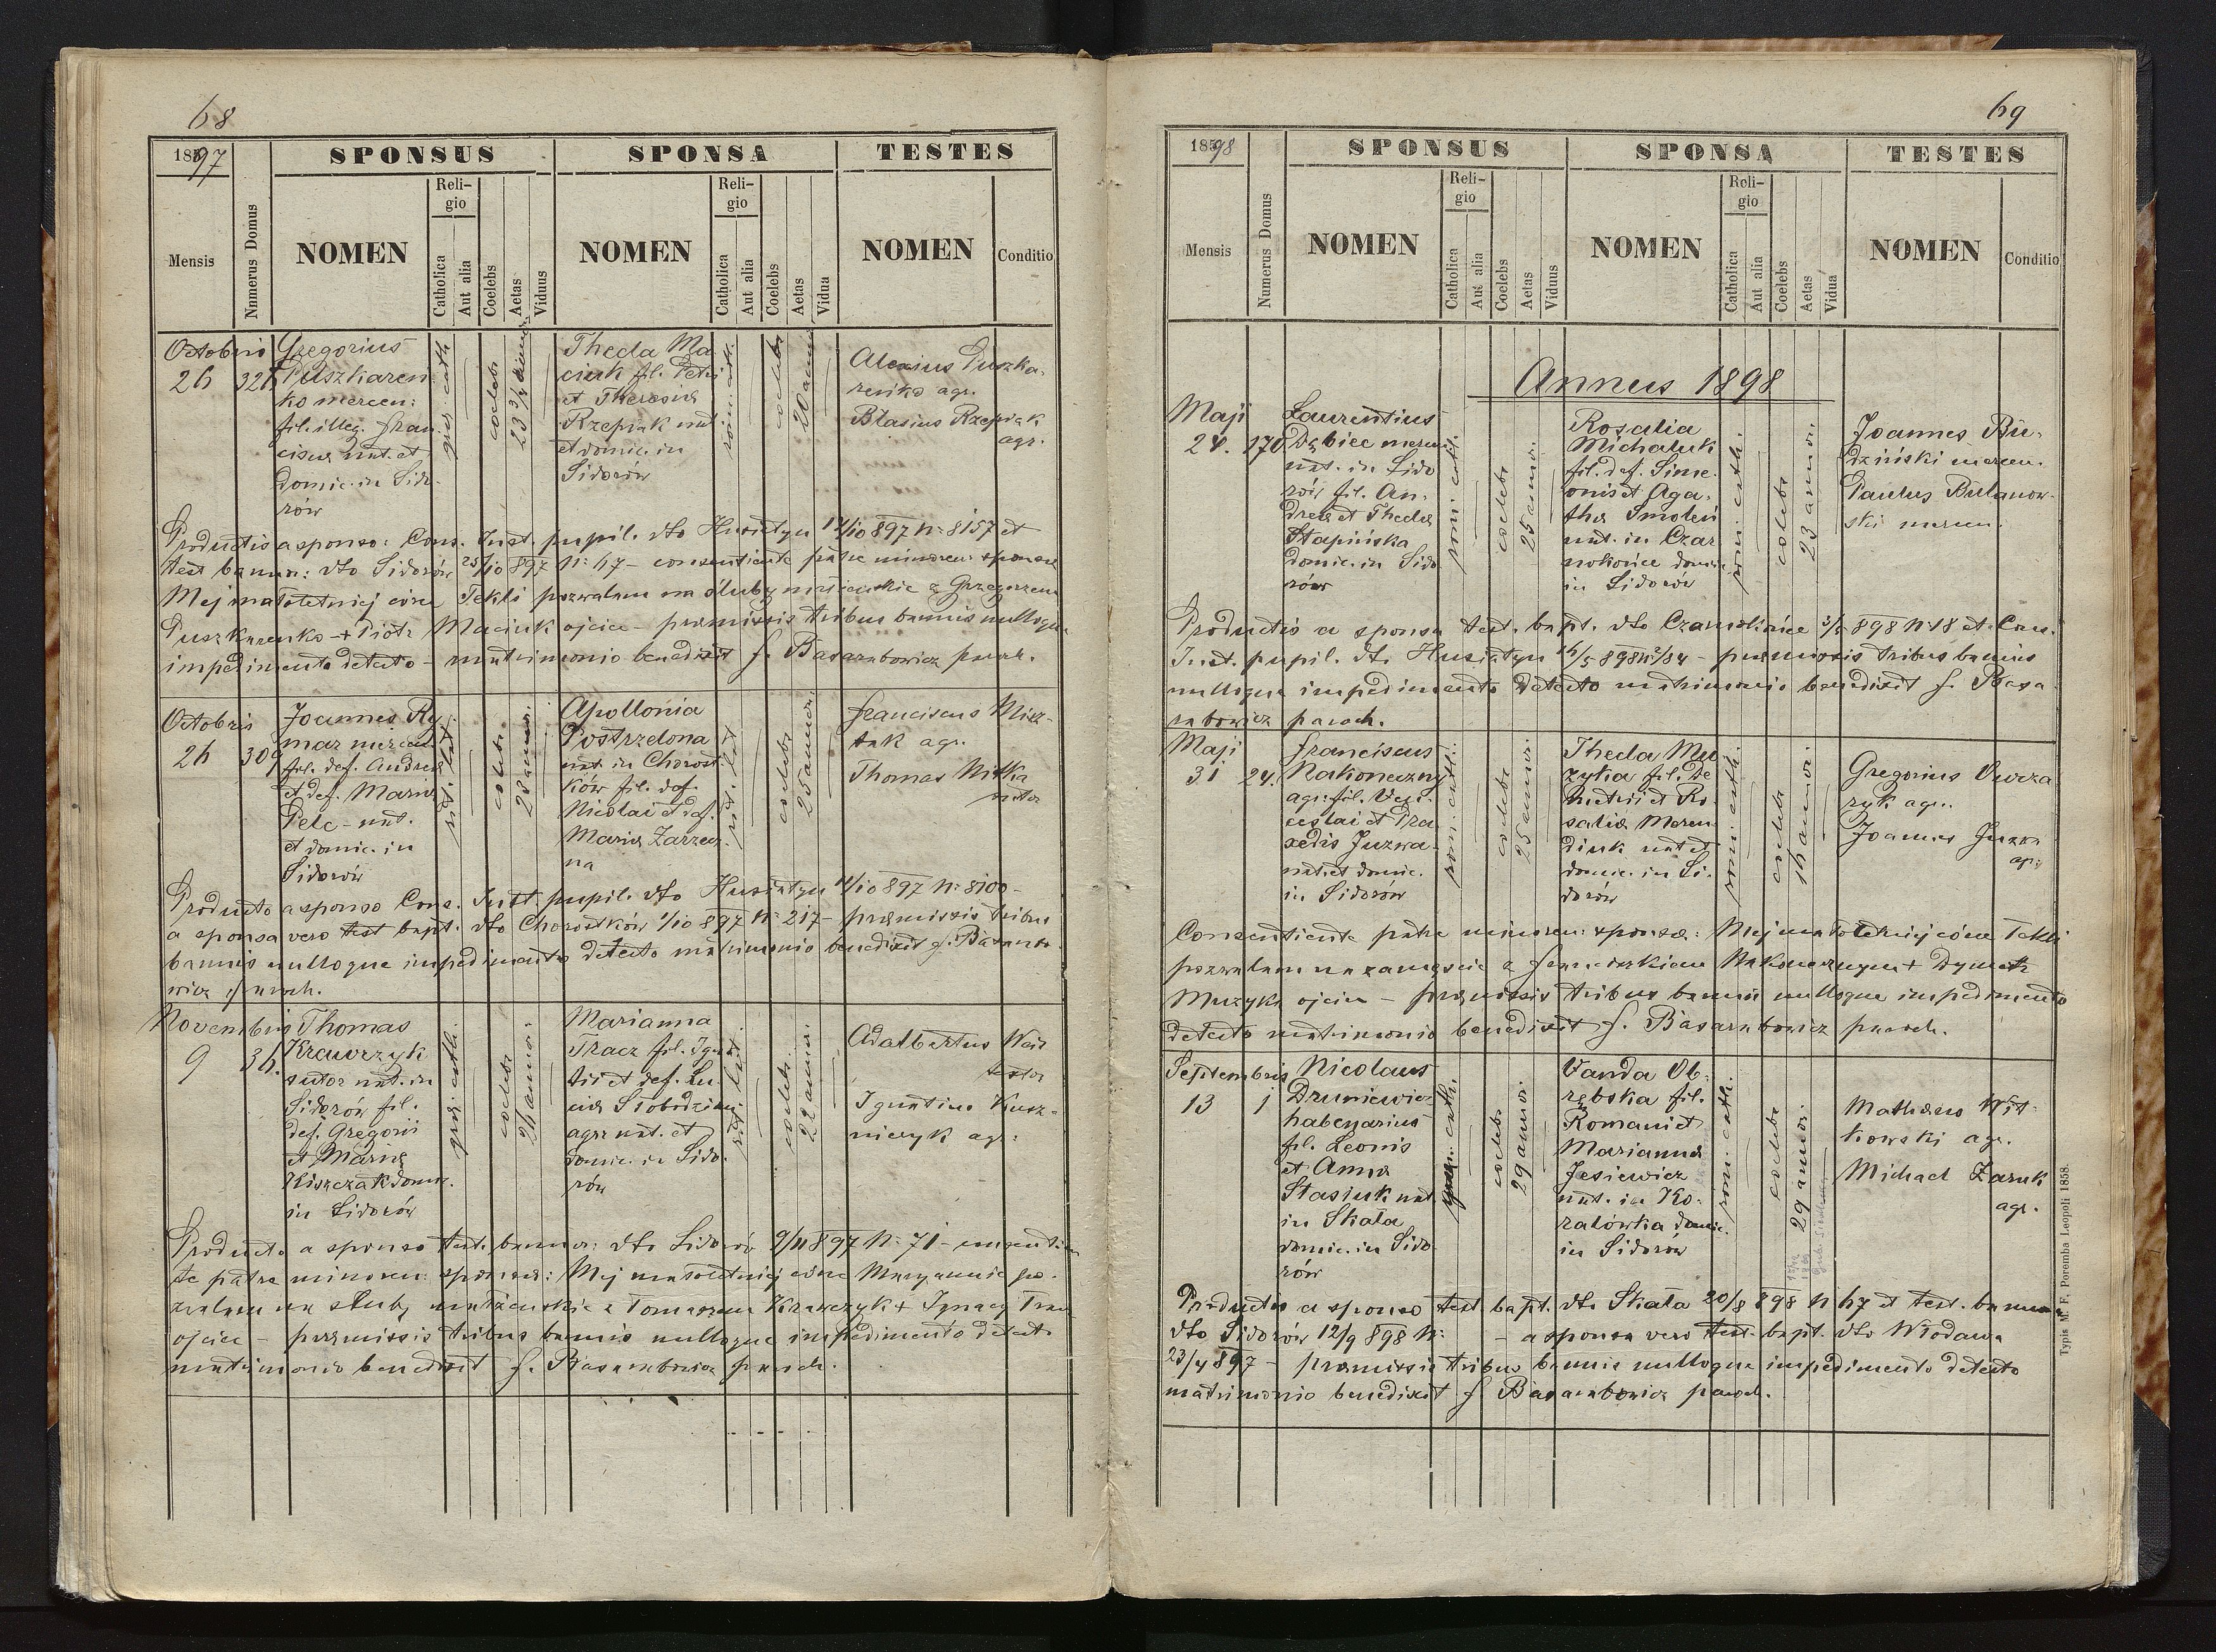 68
1897
SPONSUS
SPONSA
TESTES
Mensis
Numerus Domus
NOMEN
Religio
Catholica
Aut alia
Coelebs
Aetas
Viduus
NOMEN
Religio
Catholica
Aut alia
Coelebs
Aetas
Vidua
NOMEN
Conditio
Octobris
26
326
Gregorius
Puszkaren
ko mercen:
fil. illeg. Fran
ciscæ nat. et
domic. in Sido
rów
coelebs
Thecla Ma
ciuk fil. Petri
et Theresiæ
Rzepiak nat
et domic. in
Sidorów
rom. cath.
coelebs
20 annor
Alexius Puszka-
renko agr.
Blasius Rzepiak
agr.
Productis a sponso: Cons. Inst. pupil. dto Husiatyn 897 N: 8157 et
test bannor: dto Sidorów 25/10 897 N: 67 – consentiente patre minoren: sponsæ
Mej małoletniej córce Tekli pozwalam na śluby małżeńskie z Grzegorzem
Puszkarenko + Piotr Maciuk ojciec – præmissis tribus bannis nulloque
impedimento detecto – matrimonio benedixit f. Basarabowicz paroch.
Octobris
26
309
Joannes Ry
mar mercen.
fil. def. Andreæ
et def. Mariæ
Pelc – nat.
et domic. in
Sidorów
rit. lat
coelebs
Apollonia
Postrzelona
nat. in Chorost
ków fil. def.
Nicolai et def.
Mariæ Zarzecz
na
rit. lat
coelebs
25 annor
Franciscus Misz-
tak agr.
Thomas Mitka
sutor
Producto a sponso Cons. Inst. pupil. dto Husiatyn 897 N: 8100 –
a sponsa vero test bapt. dto Chorostków 1/10 897 N: 217 – præmissis tribus
bannis nulloque impedimento detecto matrimonio benedixit f. Basarabo-
wicz paroch.
Novembris
9
36.
Thomas
Krawczyk
sutor nat. in
Sidorów fil.
def. Gregorii
et Mariæ
Kiszczak domic.
in Sidorów
coelebs
Marianna
Tracz fil. Igna
tii et def. Lu
ciæ Słobodzian
agr. nat. et
domic. in Sido-
rów
rit. lat.
coelebs
22 annor
Adalbertus
Ignatius Kusz-
nieryk agr:
Producto a sponso test. bannor: dto Sidorów 9/11 897 N: 71 – consentien
te patre minoren: sponsæ: Mej małoletniej córce Maryannie po-
zwalam na śluby małżeńskie z Tomaszem Krawczyk + Ignacy Tracz
ojciec – præmissis tribus bannis nulloque impedimento detecto
matrimonio benedixit f. Basarabowicz paroch.
69
1898
SPONSUS
SPONSA
TESTES
Mensis
Numerus Domus
NOMEN
Religio
Catholica
Aut alia
Coelebs
Aetas
Viduus
NOMEN
Religio
Catholica
Aut alia
Coelebs
Aetas
Vidua
NOMEN
Conditio
Annus 1898
Maji
24.
170
Laurentius
Dąbiec mercen
nat. in Sido
rów fil. An-
dreæ et Theclæ
Stapińska
domic. in Sido
rów
rom. cath.
coelebs
25 annor.
Rosalia
Michaluk
fil. def. Sime-
onis et Aga-
thæ Smoleń
nat. in Czar
nokońce domic.
in Sidorów
rom. cath.
coelebs
23 annor.
Joannes Bu-
dziński mercen.
Paulus Bulanow-
ski mercen.
Productis a sponsa test. bapt. dto Czarnokońce 898 N: 18 et. Con.
Inst. pupil. dto Husiatyn 16/5 898 – præmissis tribus bannis
nulloque impedimento detecto matrimonio benedixit f. Basa-
rabowicz paroch.
Maji
31
24.
Franciscus
Nakoneczny
agr. fil. Ven-
ceslai et Pra
xedis Juzwa
nat. et domic.
in Sidorów
rom. cath.
coelebs
25 annor.
Thecla Mu
zyka fil. De
metrii et Ro-
saliæ Meren
diuk nat. et
domic. in Si-
dorów
rom. cath.
coelebs
Gregorius Owcza
ryk agr.
Joannes Juzwa
agr
Consentiente patre minoren: sponsæ: Mej małoletniej córce Tekli
pozwalam na zamęście z Franciszkiem Nakonecznym + Dymetr
Muzyka ojciec – præmissis tribus bannis nulloque impedimento
detecto matrimonio benedixit f. Basarabowicz paroch.
Septembris
13
1
Nicolaus
Druniewicz
habenarius
fil. Leonis
et Annæ
Stasiuk nat.
in Skała
domic. in Sido
rów
coelebs
29 annor.
Vanda Ob-
rębska fil.
Romani et
Mariannæ
Jesiewicz
nat. in Ko-
zalówka domic.
in Sidorów
rom. cath.
coelebs
29 annor.
Mathæus Wit-
kowski agr.
Michael Zaruk
agr.
Productis a sponso test bapt. dto Skała 20/8 898 N 67 et test. bannor
dto Sidorów 12/9 898 N: – a sponsa vero test. bapt. dto Włodawa
23/4 897 – præmissis tribus bannis nulloque impedimento detecto
matrimonio benedixit f Basarabowicz paroch.
Typis M. F. Poremba Leopoli 1858.